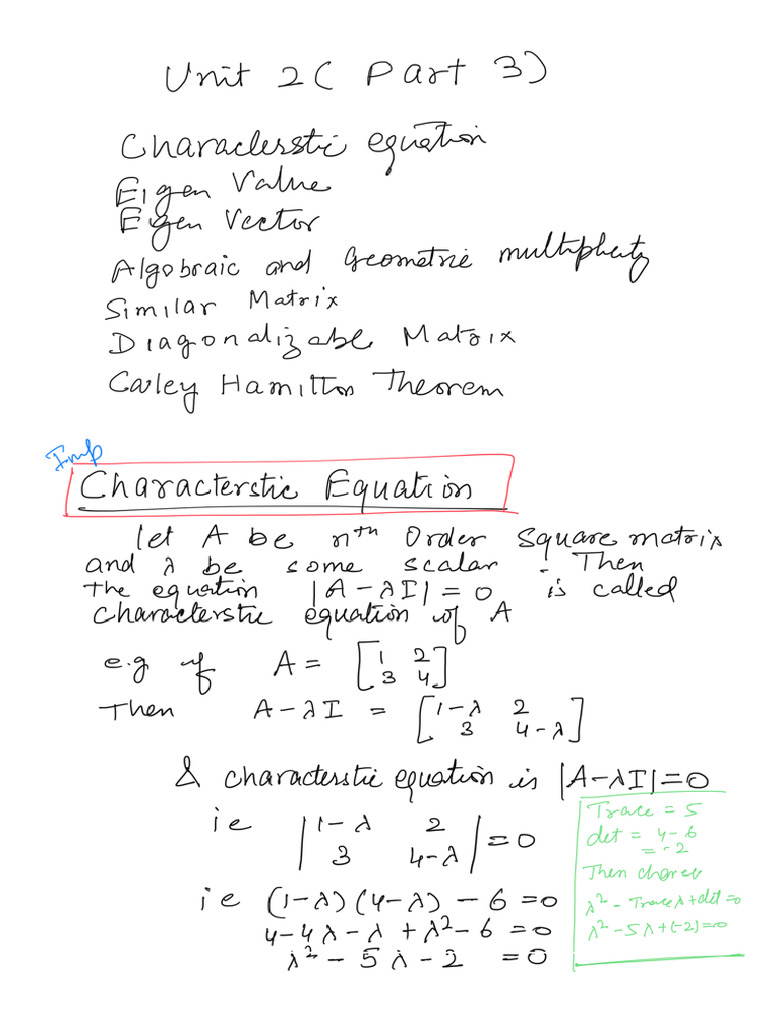 Unit 2 ( Part 3)
Characterstic equation
Eigen Value
Eigen Vector
Algobraic and Geometric multiplicity
Similar Matrix
Diagonalizable Matrix
Carley Hamilton Theorem
Imp
Characterstic Equation
let A be nth Order square matrix
and λ be some scalar. Then
the equation |A-λI| = 0 is called
characterstic equation of A
e.g if A = [1 2
3 4]
Then A-λI = [1-λ 2
3 4-λ]
& characterstic equation is |A-λI|=0
ie |1-λ 2
3 4-λ| = 0
ie (1-λ)(4-λ) - 6 = 0
4-4λ-λ+λ²-6 = 0
λ² - 5λ - 2 = 0
Trace = 5
det = 4-6
= -2
Then charac
λ² - Trace λ + det = 0
λ² - 5λ + (-2) = 0